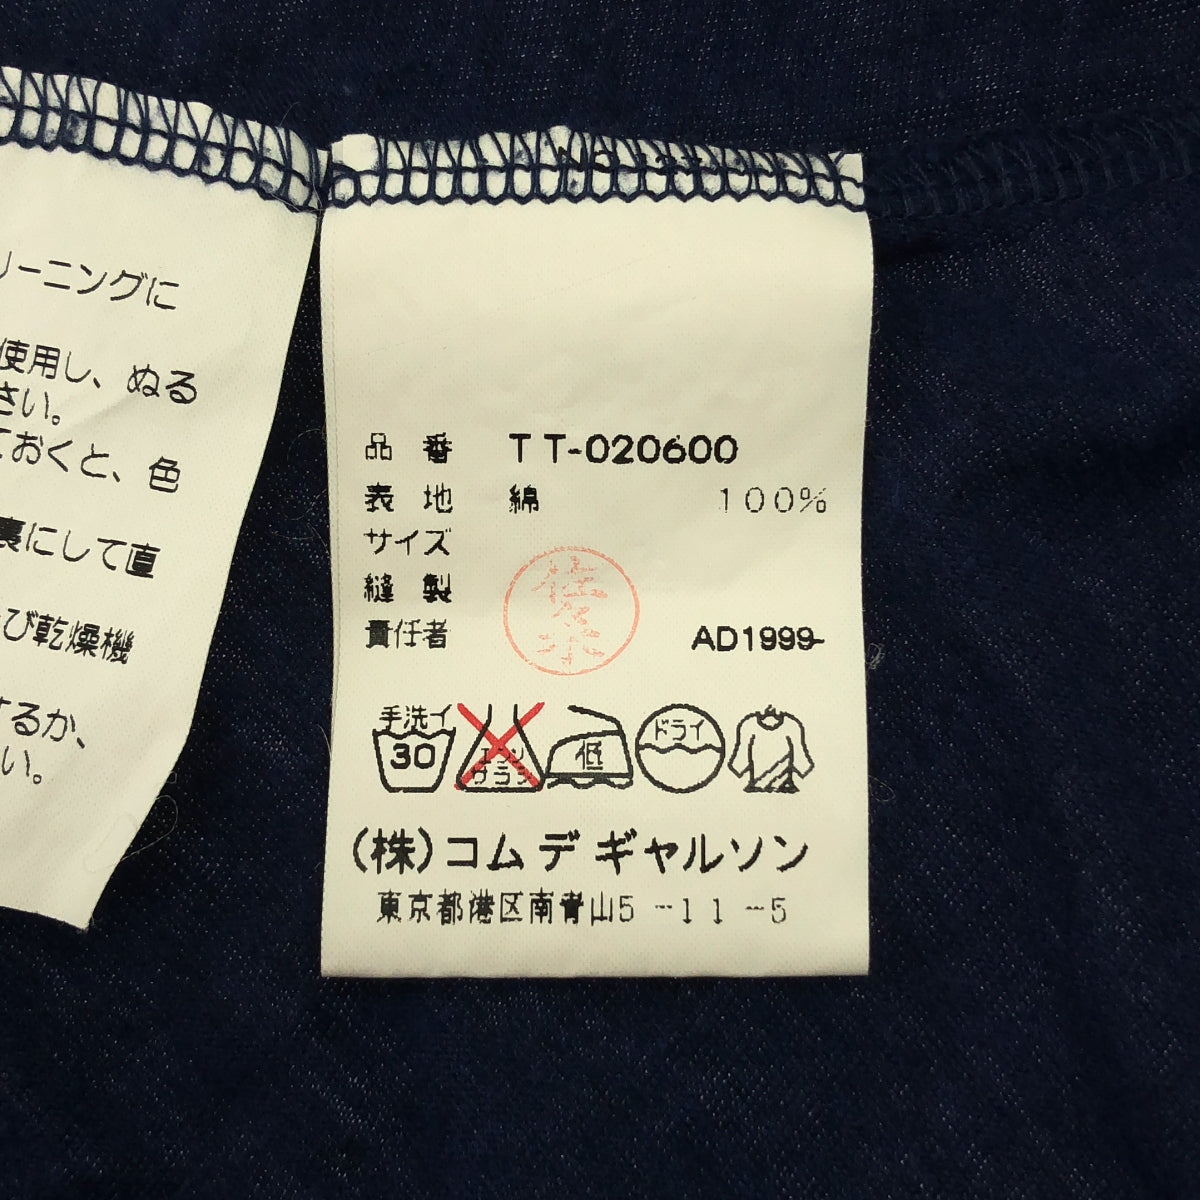 リーニングに
使用し、ぬる
さい。
ておくと、色
裏にして直
び乾燥機
するか、
い。
品番 TT-020600
表地 綿 100%
サイズ
縫製
責任者 AD1999
佐々木
手洗イ
30
エンソ
サラシ
低
ドライ
(株)コム デ ギャルソン
東京都港区南青山5-11-5